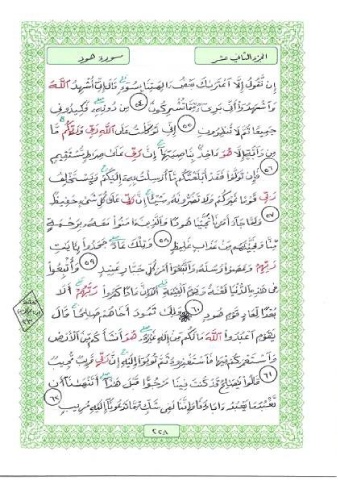 الجزء الثاني عشر سورة هود
إِن نَّقُولُ إِلَّا اعْتَرَىٰكَ بَعْضُ ءَالِهَتِنَا بِسُوٓءٍ قَالَ إِنِّي أُشْهِدُ اللَّهَ
وَاشْهَدُوٓا أَنِّي بَرِيٓءٌ مِّمَّا تُشْرِكُونَ ٥٤ مِن دُونِهِ فَكِيدُونِي
جَمِيعًا ثُمَّ لَا تُنظِرُونِ ٥٥ إِنِّي تَوَكَّلْتُ عَلَى اللَّهِ رَبِّي وَرَبِّكُم مَّا
مِن دَآبَّةٍ إِلَّا هُوَ ءَاخِذٌ بِنَاصِيَتِهَآ إِنَّ رَبِّي عَلَىٰ صِرَٰطٍ مُّسْتَقِيمٍ
٥٦ فَإِن تَوَلَّوْا فَقَدْ أَبْلَغْتُكُم مَّآ أُرْسِلْتُ بِهِ إِلَيْكُمْ وَيَسْتَخْلِفُ
رَبِّي قَوْمًا غَيْرَكُمْ وَلَا تَضُرُّونَهُ شَيْئًا إِنَّ رَبِّي عَلَىٰ كُلِّ شَيْءٍ حَفِيظٌ
٥٧ وَلَمَّا جَآءَ أَمْرُنَا نَجَّيْنَا هُودًا وَالَّذِينَ ءَامَنُوا مَعَهُ بِرَحْمَةٍ
مِّنَّا وَنَجَّيْنَٰهُم مِّنْ عَذَابٍ غَلِيظٍ ٥٨ وَتِلْكَ عَادٌ جَحَدُوا بِـَٔايَٰتِ
رَبِّهِمْ وَعَصَوْا رُسُلَهُ وَاتَّبَعُوٓا أَمْرَ كُلِّ جَبَّارٍ عَنِيدٍ ٥٩ وَأُتْبِعُوا
فِي هَٰذِهِ الدُّنْيَا لَعْنَةً وَيَوْمَ الْقِيَٰمَةِ أَلَآ إِنَّ عَادًا كَفَرُوا رَبَّهُمْ أَلَا
بُعْدًا لِّعَادٍ قَوْمِ هُودٍ ٦٠ وَإِلَىٰ ثَمُودَ أَخَاهُمْ صَٰلِحًا قَالَ
يَٰقَوْمِ اعْبُدُوا اللَّهَ مَا لَكُم مِّنْ إِلَٰهٍ غَيْرُهُ هُوَ أَنشَأَكُم مِّنَ الْأَرْضِ
وَاسْتَعْمَرَكُمْ فِيهَا فَاسْتَغْفِرُوهُ ثُمَّ تُوبُوٓا إِلَيْهِ إِنَّ رَبِّي قَرِيبٌ مُّجِيبٌ
٦١ قَالُوا يَٰصَٰلِحُ قَدْ كُنتَ فِينَا مَرْجُوًّا قَبْلَ هَٰذَآ أَتَنْهَىٰنَآ أَن
نَّعْبُدَ مَا يَعْبُدُ ءَابَآؤُنَا وَإِنَّنَا لَفِي شَكٍّ مِّمَّا تَدْعُونَآ إِلَيْهِ مُرِيبٍ ٦٢
٢٢٨